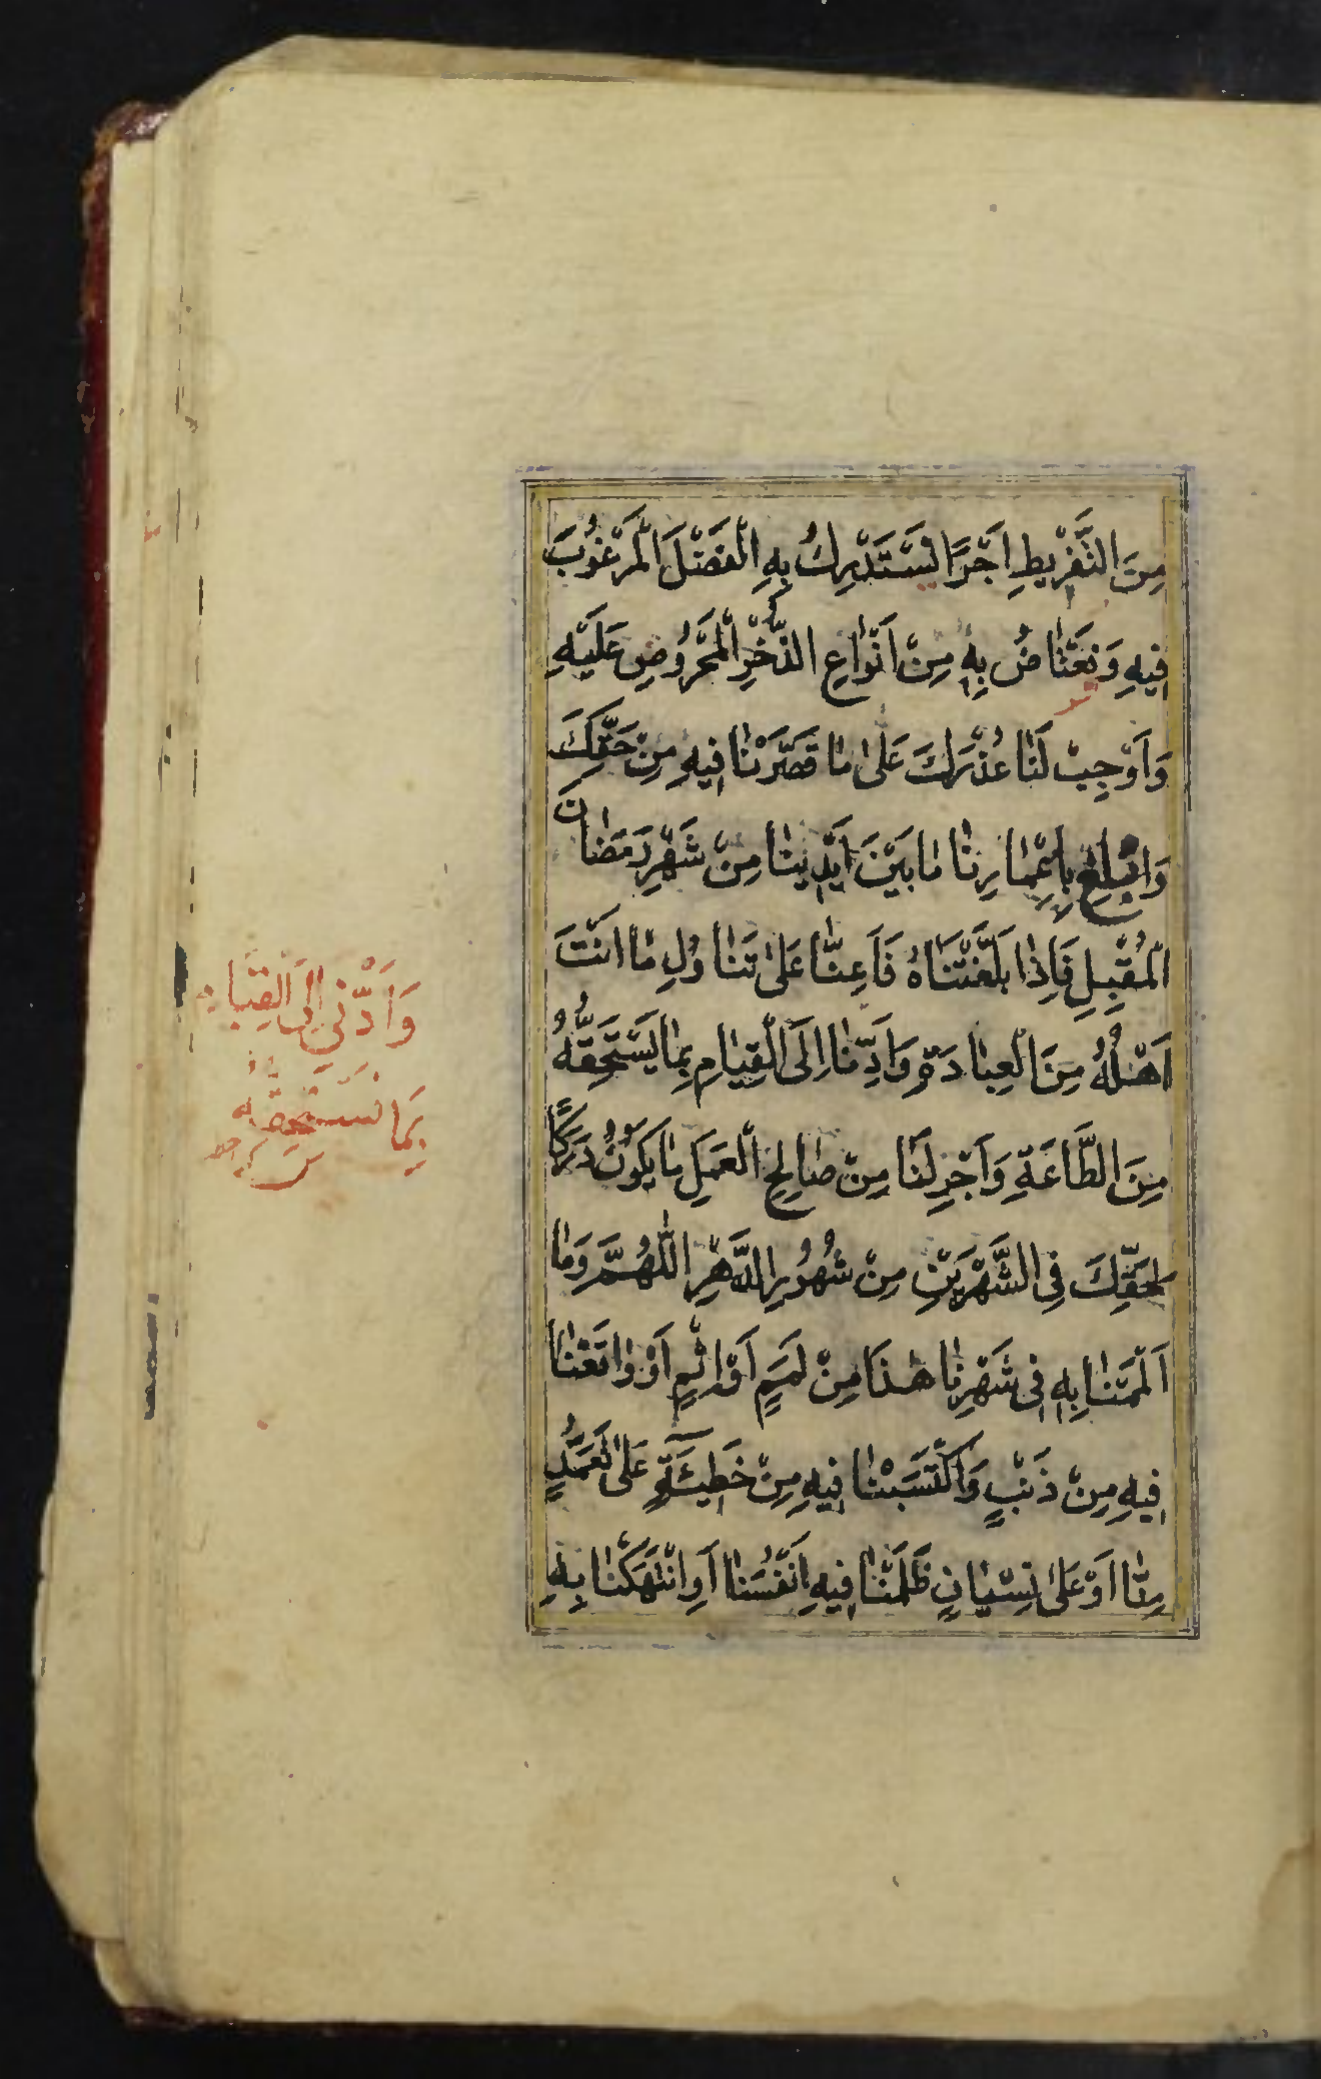 مِنَ التَّفْرِيطِ اَجْرًا نَسْتَدْرِكُ بِهِ الْفَضْلَ الْمَرْغُوبَ
فِيهِ وَنَعْتَاضُ بِهِ مِنْ اَنْوَاعِ الذُّخْرِ الْمَحْرُوصِ عَلَيْهِ
وَاَوْجِبْ لَنَا عُذْرَكَ عَلٰى مَا قَصَّرْنَا فِيهِ مِنْ حَقِّكَ
وَابْلُغْ بِاَعْمَارِنَا مَا بَيْنَ اَيْدِينَا مِنْ شَهْرِ رَمَضَانَ
الْمُقْبِلِ فَاِذَا بَلَّغْتَنَاهُ فَاَعِنَّا عَلٰى تَنَاوُلِ مَا اَنْتَ
اَهْلُهُ مِنَ الْعِبَادَةِ وَاَدِّنَا اِلَى الْقِيَامِ بِمَا يَسْتَحِقُّهُ
مِنَ الطَّاعَةِ وَاَجْرِ لَنَا مِنْ صَالِحِ الْعَمَلِ مَا يَكُونُ دَرَكًا
لِحَقِّكَ فِى الشَّهْرَيْنِ مِنْ شُهُورِ الدَّهْرِ اَللّٰهُمَّ وَمَا
اَلْمَمْنَا بِهِ فِى شَهْرِنَا هٰذَا مِنْ لَمَمٍ اَوْ اِثْمٍ اَوْ وَاقَعْنَا
فِيهِ مِنْ ذَنْبٍ وَاكْتَسَبْنَا فِيهِ مِنْ خَطِيئَةٍ عَلٰى تَعَمُّدٍ
مِنَّا اَوْ عَلٰى نِسْيَانٍ ظَلَمْنَا فِيهِ اَنْفُسَنَا اَوِ انْتَهَكْنَا بِهِ
وَاَدِّنِى اِلَى الْقِيَامِ
بِمَا نَسْتَحِقُّهُ